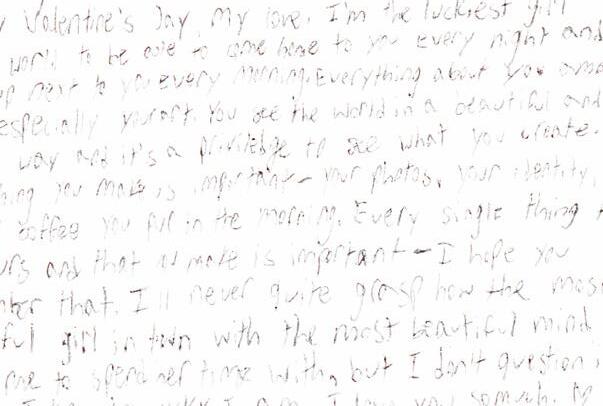 Valentine's Day, my love. I'm the luckiest girl
world to be able to come home to you every night and
up next to you every morning. Everything about you
especially your art. You see the world in a beautiful and
way and it's a priviledge to see what you create.
thing you make is important - your photos, your identity,
coffee you put in the morning. Every single thing
and that you make is important - I hope you
that. I'll never quite grasp how the most
girl in town with the most beautiful mind
me to spend her time with, but I don't question
I am. I love you so much.